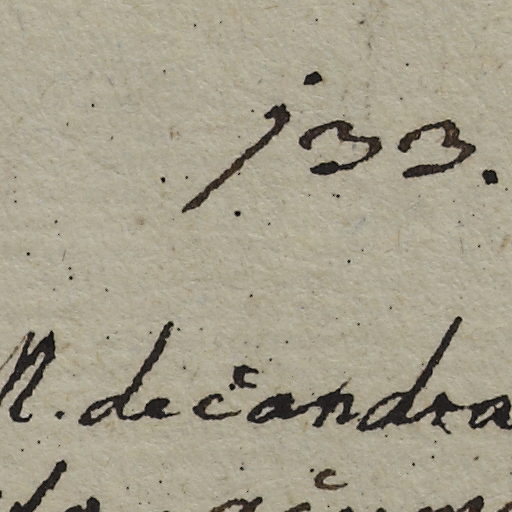 133.
M. decandra